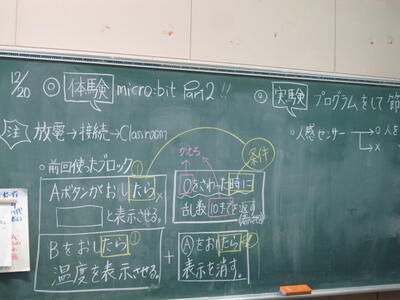 12/20
◎体験 micro:bit Part2!!
注 放電→接続→Classroom
○前回使ったブロック
Aボタンがおしたら
と表示させる。
Bをおしたら
温度を表示させる。
+
かたち
条件
をさわった時に
乱数10までを返す
(表示させる)
Aをおしたら
表示を消す。
◎実験 プログラムをして節
○人感センサー
→○ 人を
→×